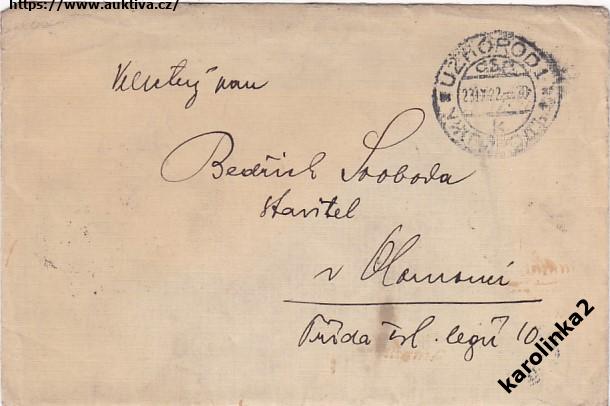 https://www.auktiva.cz/
UŽHOROD 1
ČSR.
Velectěný pan
Bedřich Svoboda
stavitel
v Olomouci
Třída čsl. legií 10.
karolinka2